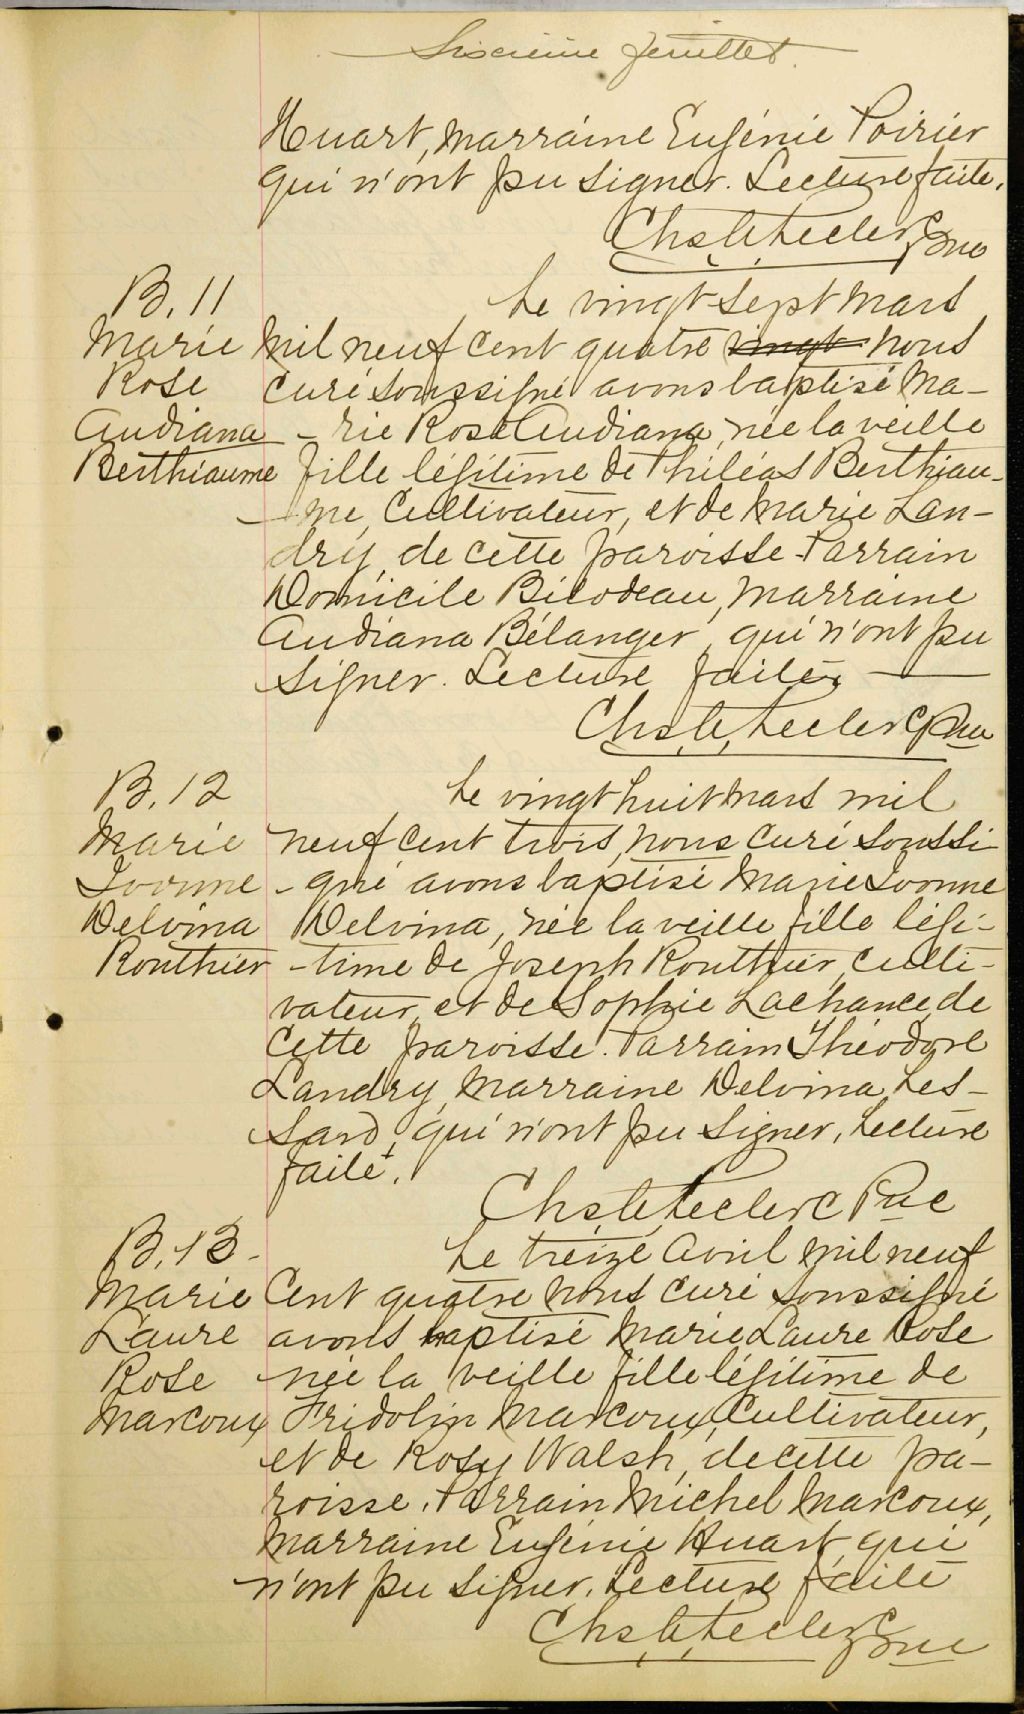 Sixieme feuillet.
Huart, Marraine Eugénie Poirier
qui n'ont pu signer. Lecture faite.
Chs. E. Leclerc Ptre
B. 11
Marie
Rose
Audiana
Berthiaume
Le vingt-sept Mars
Mil neuf cent quatre vingt nous
curé soussigné avons baptisé Ma-
-rie Rose Audiana, née la veille
fille légitime de Philéas Berthiau-
-me, Cultivateur, et de Marie Lan-
dry, de cette paroisse. Parrain
Domicile Bilodeau, Marraine
Audiana Bélanger, qui n'ont pu
signer. Lecture faite.
Chs. E. Leclerc Ptre
B. 12
Marie
Ivonne
Delvina
Routhier
Le vingt huit Mars mil
neuf cent trois, nous curé soussi-
-gné avons baptisé Marie Ivonne
Delvina, née la veille fille légi-
-time de Joseph Routhier, culti-
vateur, et de Sophie Lachance, de
cette paroisse. Parrain Théodore
Landry, Marraine Delvina Les-
sard, qui n'ont pu signer. Lecture
faite.
Chs. E. Leclerc Ptre
B. 13 -
Marie
Laure
Rose
Marcoux
Le treize Avril mil neuf
Cent quatre nous curé soussigné
avons baptisé Marie Laure Rose
née la veille fille légitime de
Fridolin Marcoux, Cultivateur,
et de Rosy Walsh, de cette pa-
roisse. Parrain Michel Marcoux,
Marraine Eugénie Huart, qui
n'ont pu signer. Lecture faite
Chs. E. Leclerc Ptre